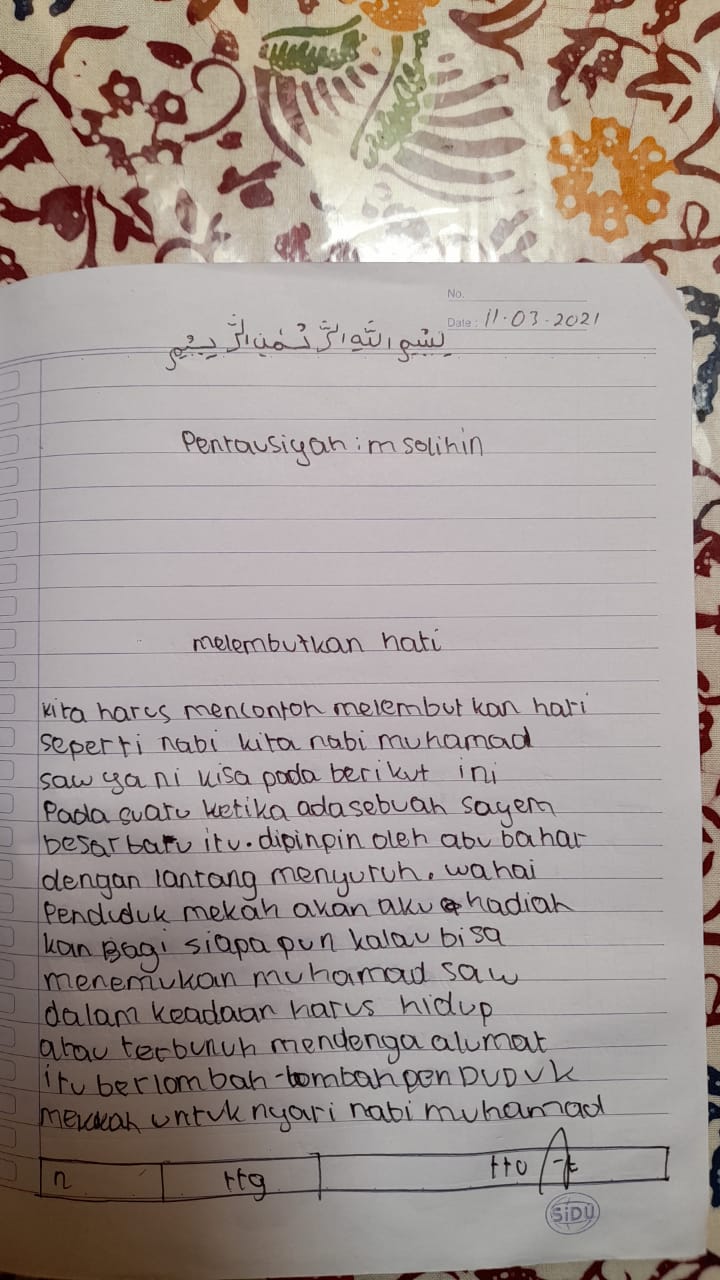 No.
Date : 11.03.2021
بسم الله الرحمن الرحيم
Pentausiyah : m solihin
melembutkan hati
kita harus mencontoh melembut kan hari
seperti nabi kita nabi muhamad
saw ya ni kisa pada berikut ini
Pada suatu ketika ada sebuah sayem
besar batu itu. dipinpin oleh abu bahar
dengan lantang menyuruh. wahai
Penduduk mekah akan aku hadiah
kan Bagi siapa pun kalau bisa
menemukan muhamad saw
dalam keadaan harus hidup
atau terbunuh mendenga alumat
itu berlombah-tombah penDUDUK
mekkah untuk nyari nabi muhamad
n ttg tto
SiDU